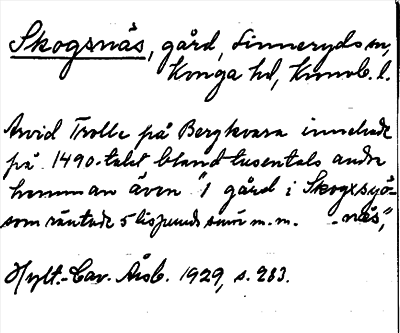 Skogsnäs, gård, Linneryds sn,
Konga hd, Kronob. l.
Arvid Trolle på Bergkvara innehade
på 1490-talet bland tusentals andra
hemman även "1 gård i Skogxsyö-
som räntade 5 lispund smör m.m. -näs",
Hylt.-Cav. Årsb. 1929, s. 283.